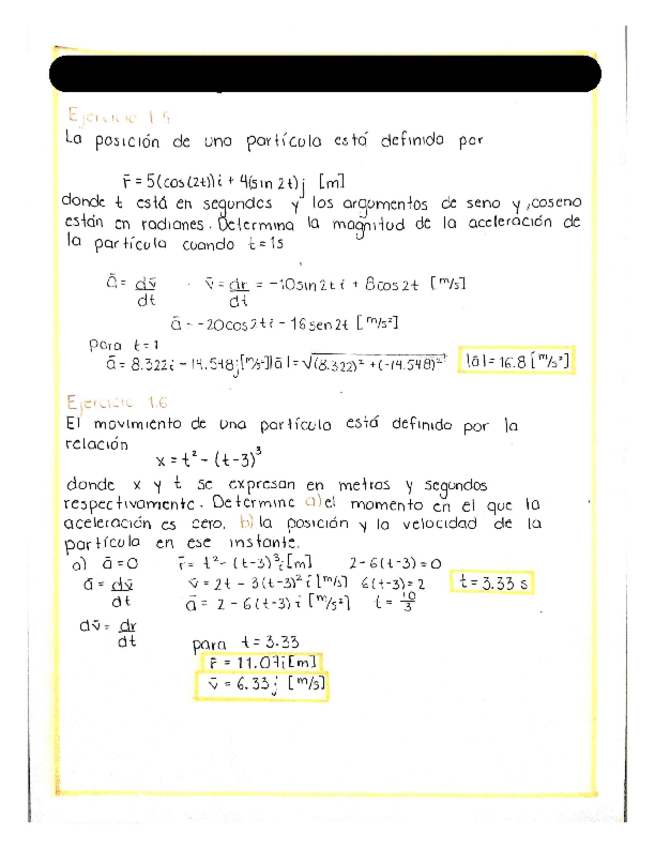 Ejercicio 1.5
La posición de una partícula está definida por
r̄ = 5(cos(2t))i + 4(sin 2t)j [m]
donde t está en segundos y los argumentos de seno y coseno
están en radianes. Determina la magnitud de la aceleración de
la partícula cuando t=1s
ā = dv̄/dt v̄ = dr/dt = -10sin2t i + 8cos2t [m/s]
ā = -20cos2ti - 16sen2t [m/s²]
para t=1
ā = 8.322i - 14.548j[m/s²] |ā| = √(8.322)² + (-14.548)² |ā| = 16.8 [m/s²]
Ejercicio 1.6
El movimiento de una partícula está definido por la
relación
x = t² - (t-3)³
donde x y t se expresan en metros y segundos
respectivamente. Determine a) el momento en el que la
aceleración es cero, b) la posición y la velocidad de la
partícula en ese instante.
a) ā=0 r̄ = t² - (t-3)³i [m] 2-6(t-3)=0
ā = dv̄/dt v̄ = 2t - 3(t-3)² i [m/s] 6(t-3)=2 t = 3.33 s
ā = 2 - 6(t-3) i [m/s²] t = 10/3
dv̄ = dr/dt
para t = 3.33
r̄ = 11.07i [m]
v̄ = 6.33j [m/s]